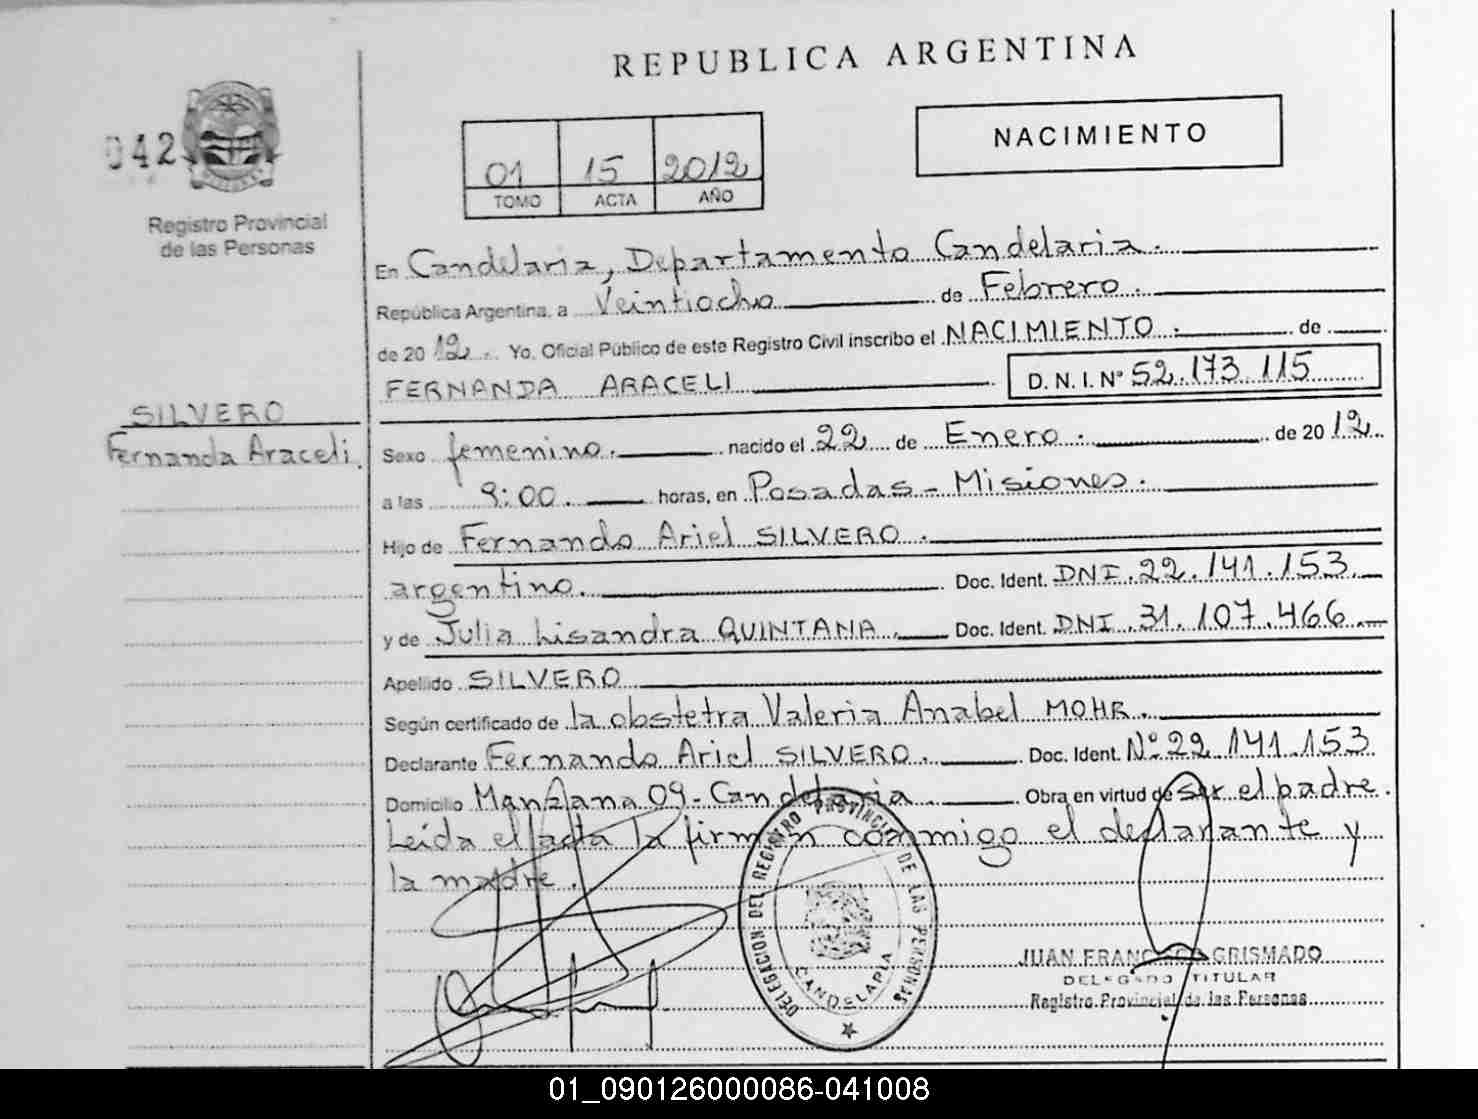 REPUBLICA ARGENTINA
042
Registro Provincial
de las Personas
01 15 2012
TOMO ACTA AÑO
NACIMIENTO
En Candelaria, Departamento Candelaria.
República Argentina, a Veintiocho de Febrero.
de 2012. Yo, Oficial Público de este Registro Civil inscribo el NACIMIENTO. de
FERNANDA ARACELI D. N. I. Nº 52.173.115
SILVERO
Fernanda Araceli.
Sexo femenino. nacido el 22 de Enero. de 2012.
a las 9:00. horas, en Posadas - Misiones.
Hijo de Fernando Ariel SILVERO.
argentino. Doc. Ident. DNI.22.141.153.
y de Julia Lisandra QUINTANA. Doc. Ident. DNI.31.107.466.
Apellido SILVERO
Según certificado de la obstetra Valeria Anabel MOHR.
Declarante Fernando Ariel SILVERO. Doc. Ident. Nº 22.141.153
Domicilio Manzana 09 - Candelaria. Obra en virtud de ser el padre.
Leída el acta la firman conmigo el declarante y
la madre.
DELEGACION DEL REGISTRO PROVINCIAL DE LAS PERSONAS
CANDELARIA
JUAN FRANCISCO GRISMADO
DELEGADO TITULAR
Registro Provincial de las Personas
01_090126000086-041008